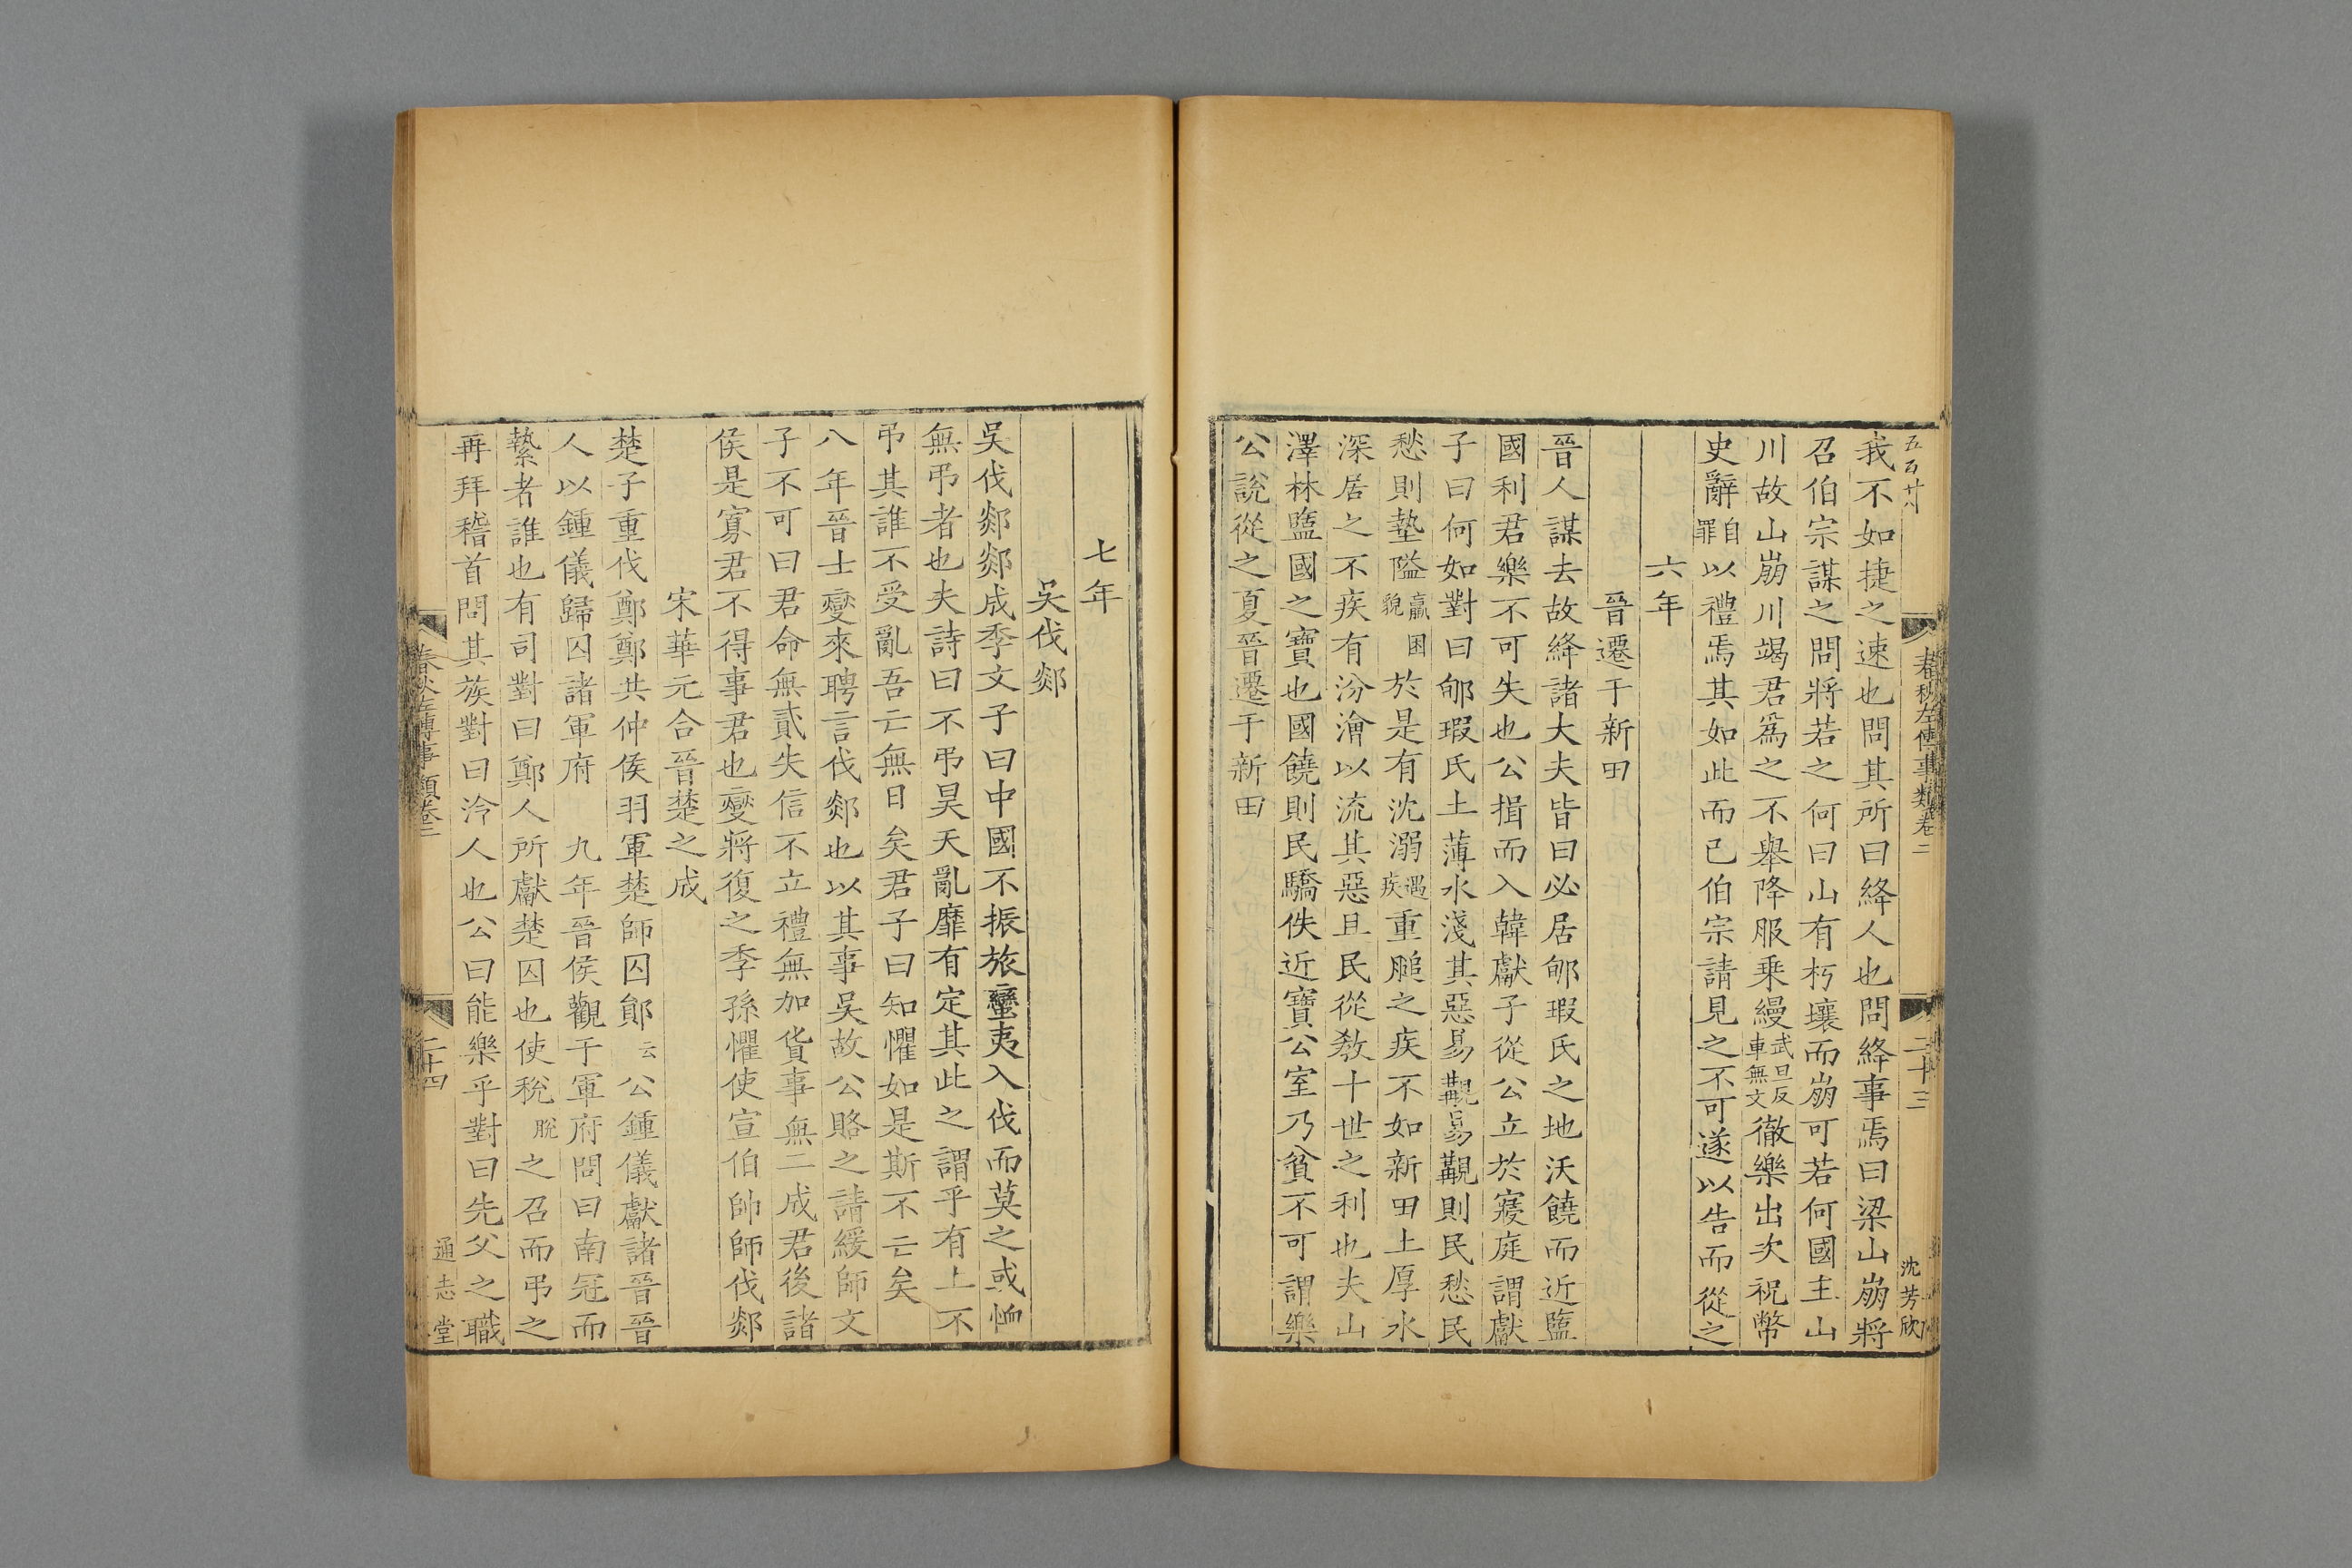 五百廿八
春秋左傳事類卷二
二十三
沈芳欣
我不如捷之速也問其所曰絳人也問絳事焉曰梁山崩將
召伯宗謀之問將若之何曰山有朽壤而崩可若何國主山
川故山崩川竭君爲之不舉降服乘縵武旦反車無文徹樂出次祝幣
史辭自罪以禮焉其如此而已伯宗請見之不可遂以告而從之
六年
晉遷于新田
晉人謀去故絳諸大夫皆曰必居郇瑕氏之地沃饒而近鹽
國利君樂不可失也公揖而入韓獻子從公立於寢庭謂獻
子曰何如對曰郇瑕氏土薄水淺其惡易覯易覯則民愁民
愁則墊隘羸困貌於是有沈溺遇疾重膇之疾不如新田土厚水
深居之不疾有汾澮以流其惡且民從敎十世之利也夫山
澤林鹽國之寶也國饒則民驕佚近寶公室乃貧不可謂樂
公說從之夏晉遷于新田
七年
吳伐郯
吳伐郯郯成季文子曰中國不振旅蠻夷入伐而莫之或恤
無弔者也夫詩曰不弔昊天亂靡有定其此之謂乎有上不
弔其誰不受亂吾亡無日矣君子曰知懼如是斯不亡矣
八年晉士燮來聘言伐郯也以其事吳故公賂之請緩師文
子不可曰君命無貳失信不立禮無加貨事無二成君後諸
侯是寡君不得事君也燮將復之季孫懼使宣伯帥師伐郯
宋華元合晉楚之成
楚子重伐鄭鄭共仲侯羽軍楚師囚鄖云公鍾儀獻諸晉晉
人以鍾儀歸囚諸軍府　九年晉侯觀于軍府問曰南冠而
縶者誰也有司對曰鄭人所獻楚囚也使稅脫之召而弔之
再拜稽首問其族對曰泠人也公曰能樂乎對曰先父之職
春秋左傳事類卷二
二十四
通志堂